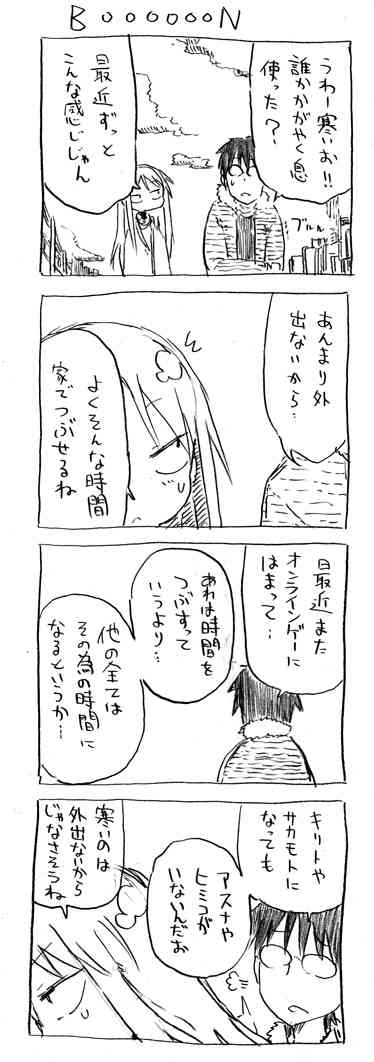 BooooooN
うわー寒いお!!
誰かかがやく息
使った?
ブルルル
最近ずっと
こんな感じじゃん
あんまり外
出ないから…
よくそんな時間
家でつぶせるね
最近また
オンラインゲーに
はまって…
あれは時間を
つぶすって
いうより…
他の全ては
その為の時間に
なるというか…
キリトや
サカモトに
なっても
アスナや
ヒミコが
いないんだお
寒いのは
外出ないから
じゃなさそうね